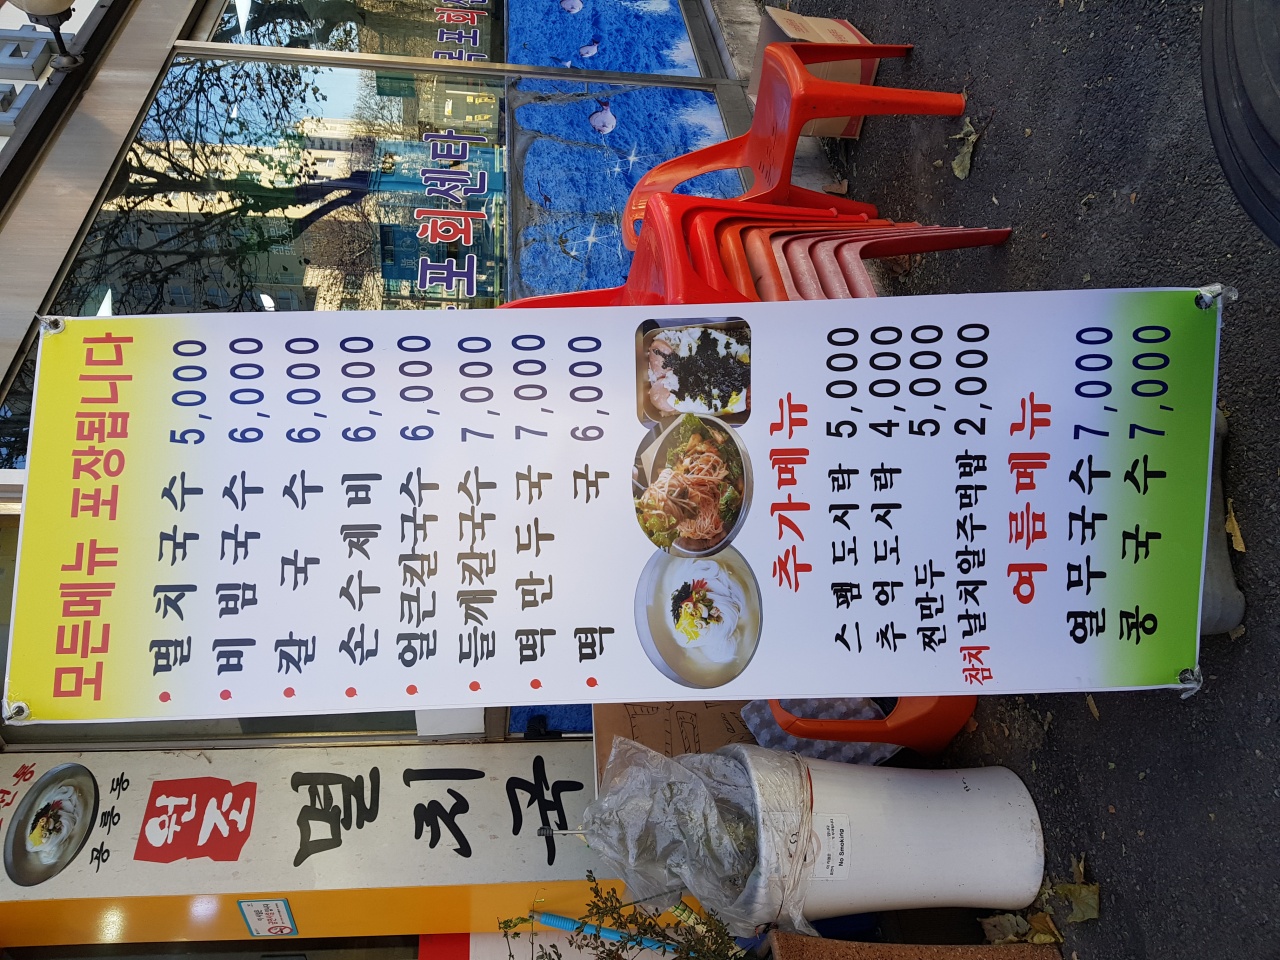 모든메뉴 포장됩니다
멸치국수 5,000
비빔국수 6,000
칼국수 6,000
손수제비 6,000
얼큰칼국수 6,000
들깨칼국수 7,000
떡만두국 7,000
떡국 6,000
추가메뉴
스팸도시락 5,000
추억도시락 4,000
찐만두 5,000
참치날치알주먹밥 2,000
여름메뉴
열무국수 7,000
콩국수 7,000
공릉동
원조
멸치국
포회센타
No Smoking